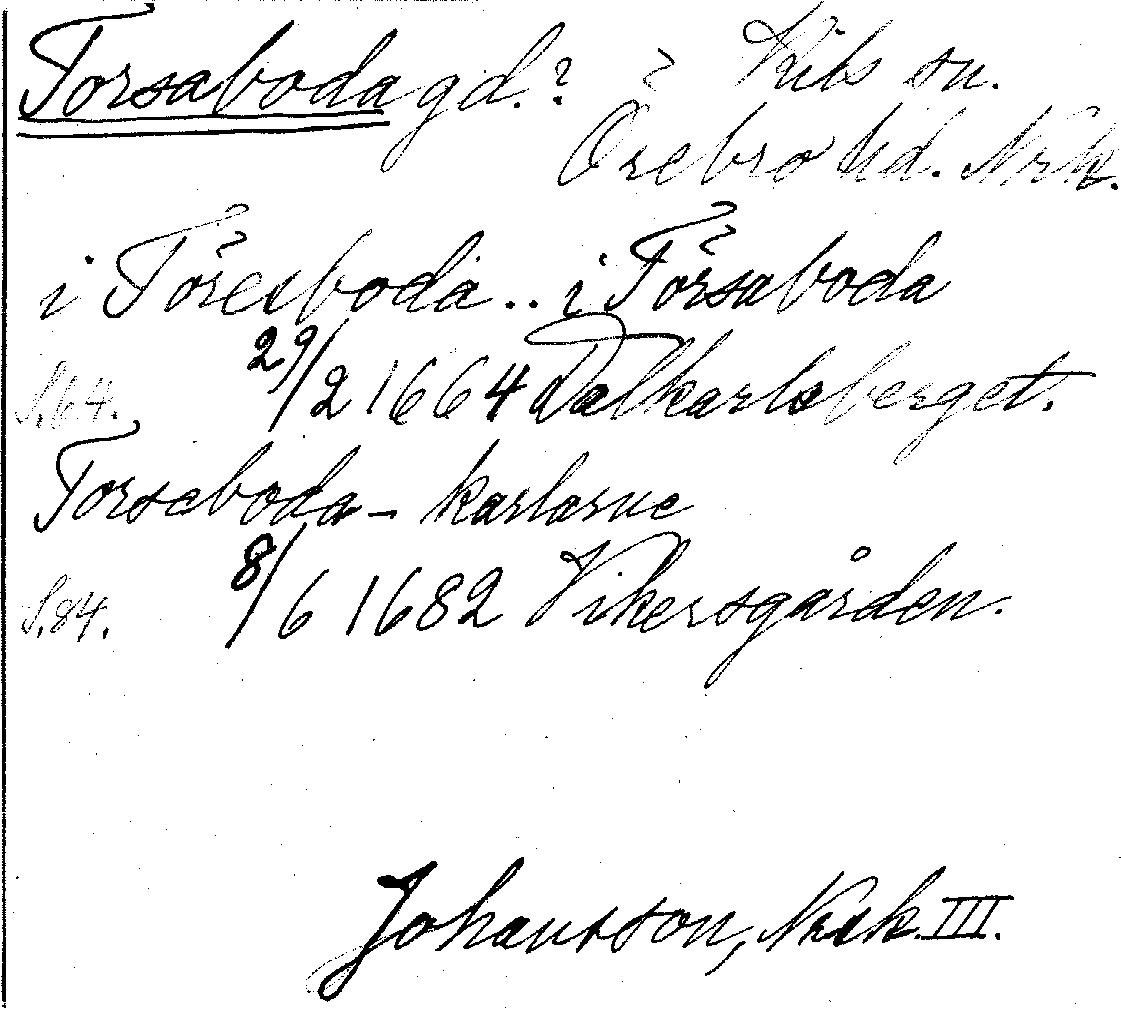 Torsabodagd.? ? Kils sn.
Örebro hd. Nrk.
i Töresboda.. i Törsaboda
S.64. 29/2 1664 Dalkarlsberget.
Torsaboda - karlarne
S.84. 8/6 1682 Vikersgården.
Johansson, Nrsk. III.